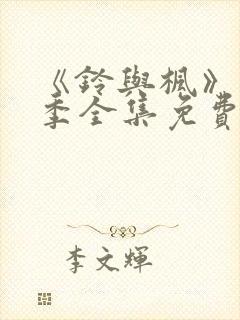 《鈴與楓》
季全集免費
李文輝